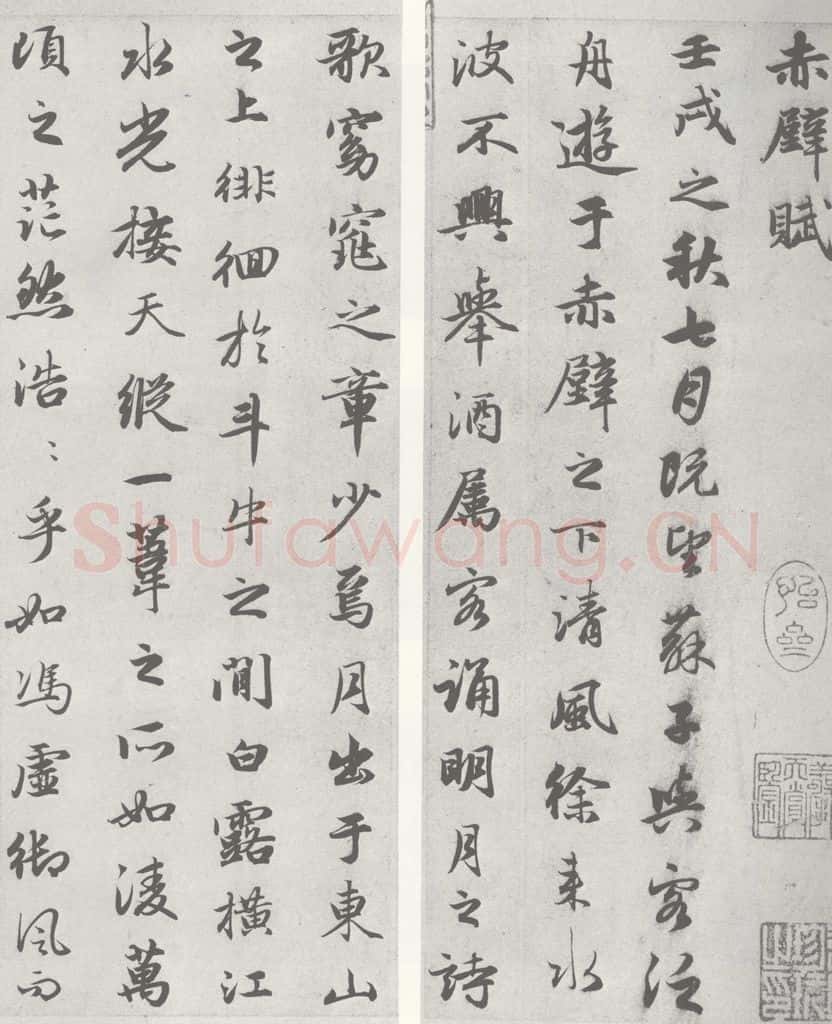 赤壁賦
壬戌之秋七月既望蘇子與客泛
舟遊于赤壁之下清風徐来水
波不興舉酒属客誦明月之詩
歌窈窕之章少焉月出于東山
之上徘徊於斗牛之間白露横江
水光接天縱一葦之所如凌萬
頃之茫然浩〻乎如馮虚御風而
Shufawang.CN